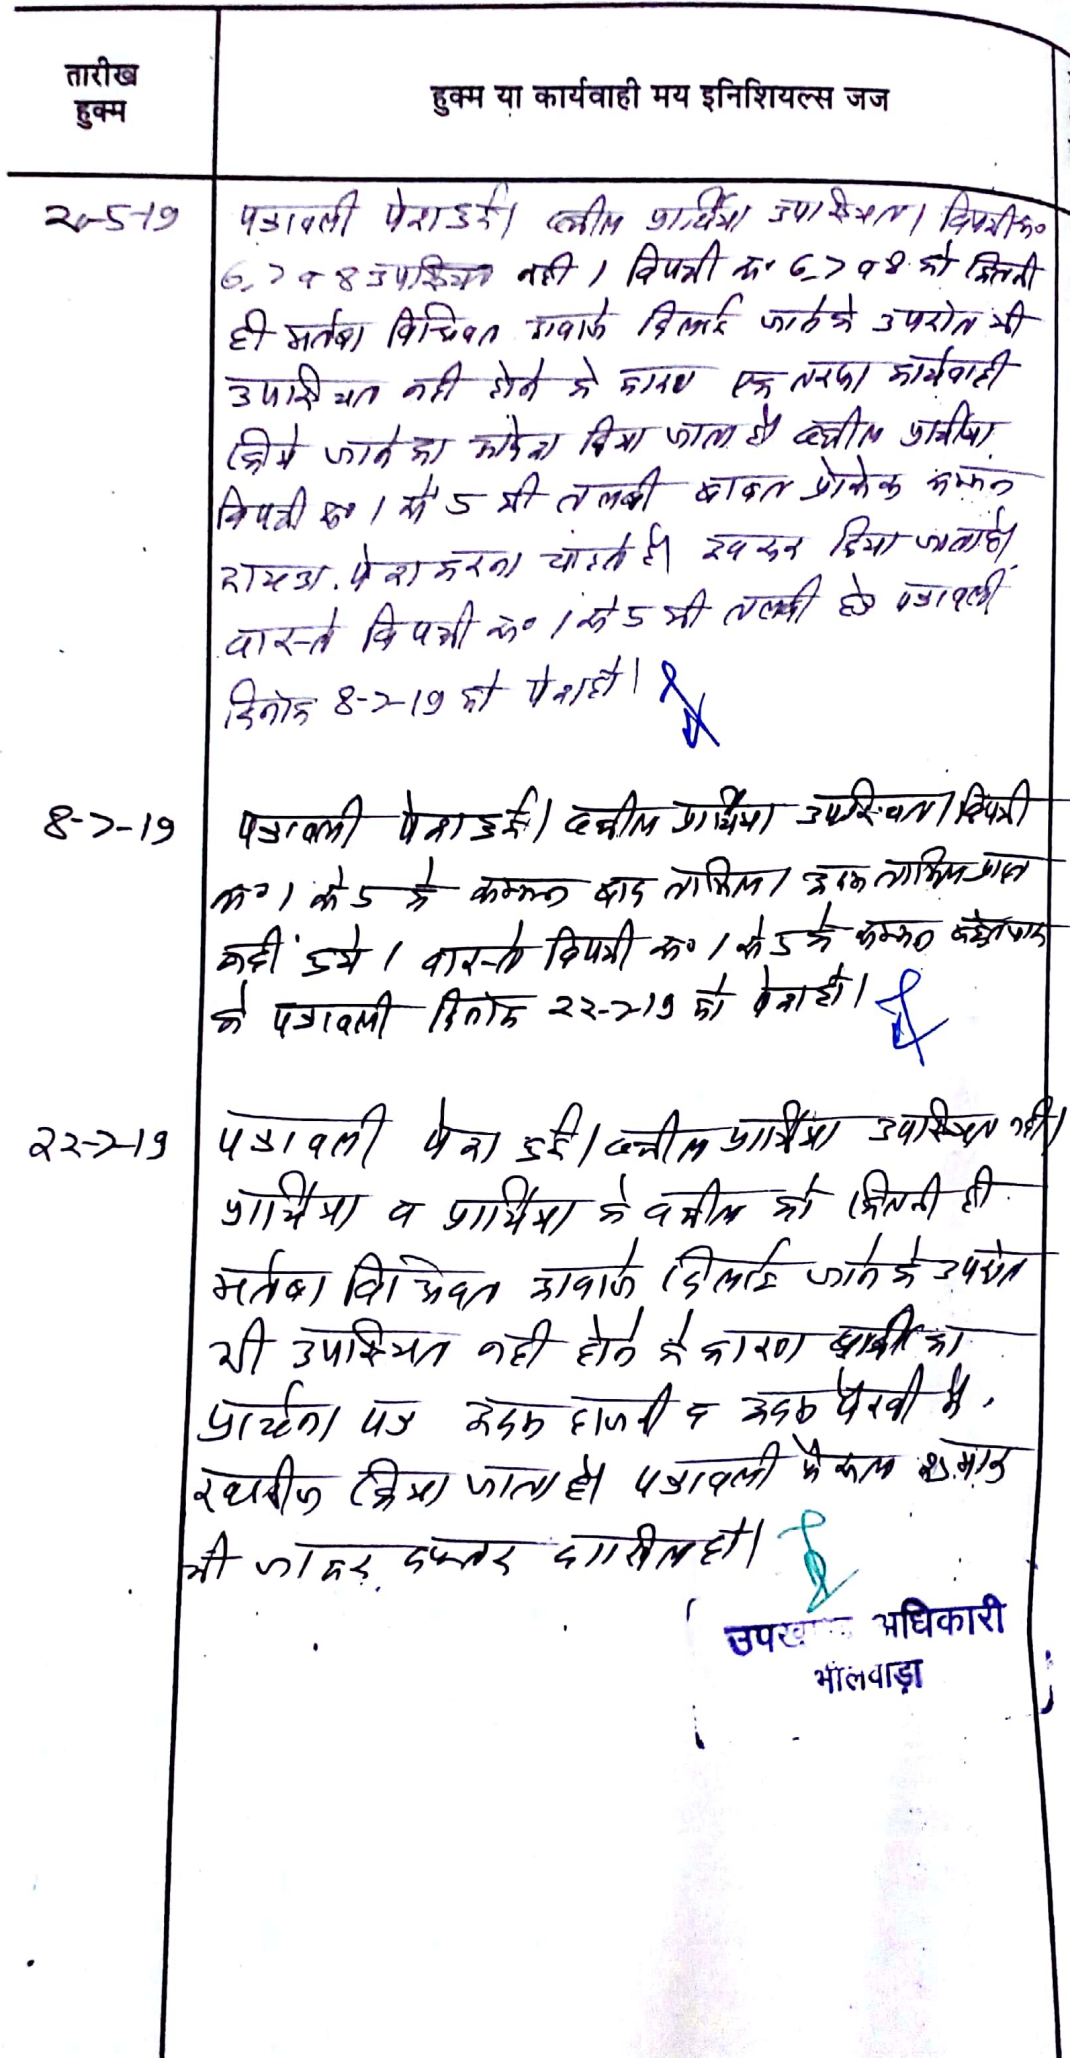 तारीख
हुक्म
हुक्म या कार्यवाही मय इनिशियल्स जज
20-5-19 पत्रावली पेश हुई। वकील प्रार्थिया उपस्थित। विपक्षी क्र०
6, 7 व 8 उपस्थित नहीं। विपक्षी क्र. 6, 7 व 8 को कितनी
ही मर्तबा विधिवत आवाजे दिलाई जाने के उपरांत भी
उपस्थित नही होने के कारण एक तरफा कार्यवाही
किये जाने का आदेश दिया जाता है। वकील प्रार्थीया
विपक्षी क्र० 1 से 5 की तलबी बाबत प्रोसेस सम्मन
पेश करना चाहते है। स्वीकार किया जाता है।
वास्ते विपक्षी क्र० 1 से 5 की तलबी हेतु पत्रावली
दिनांक 8-7-19 को पेश हो।
8-7-19 पत्रावली पेश हुई। वकील प्रार्थिया उपस्थित। विपक्षी
क्र० 1 से 5 के सम्मन बाद तामिल / अदम तामिल प्राप्त
नहीं हुये। वास्ते विपक्षी क्र० 1 से 5 के सम्मन
के पत्रावली दिनांक 22-7-19 को पेश हो।
22-7-19 पत्रावली पेश हुई। वकील प्रार्थिया उपस्थित नही।
प्रार्थिया व प्रार्थिया के वकील को कितनी ही
मर्तबा विधिवत आवाजे दिलाई जाने के उपरांत
भी उपस्थित नही होने के कारण प्रार्थी का
प्रार्थना पत्र अदम हाजरी व अदम पैरवी मे
खारीज किया जाता है। पत्रावली फैसल शुमार
की जाकर दफ्तर दाखिल हो।
अधिकारी
भीलवाड़ा